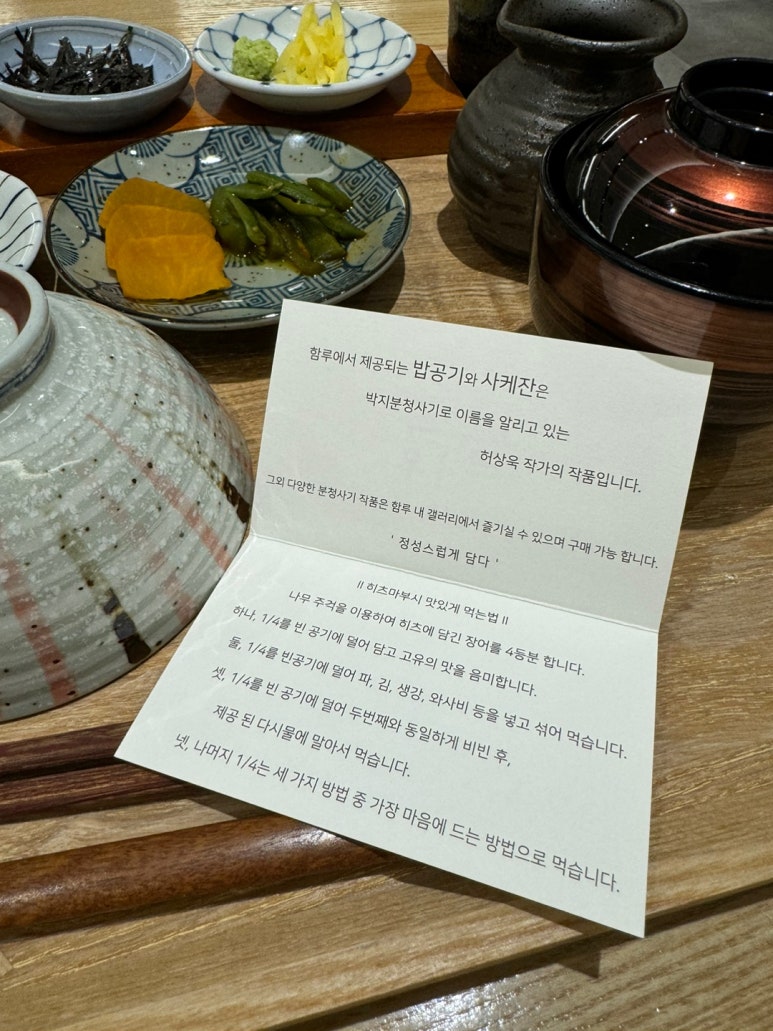 함루에서 제공되는 밥공기와 사케잔은
박지분청사기로 이름을 알리고 있는
허상욱 작가의 작품입니다.
그외 다양한 분청사기 작품은 함루 내 갤러리에서 즐기실 수 있으며 구매 가능 합니다.
' 정성스럽게 담다 '
II 히츠마부시 맛있게 먹는법 II
나무 주걱을 이용하여 히츠에 담긴 장어를 4등분 합니다.
하나, 1/4를 빈 공기에 덜어 담고 고유의 맛을 음미합니다.
둘, 1/4를 빈공기에 덜어 파, 김, 생강, 와사비 등을 넣고 섞어 먹습니다.
셋, 1/4를 빈 공기에 덜어 두번째와 동일하게 비빈 후,
제공 된 다시물에 말아서 먹습니다.
넷, 나머지 1/4는 세 가지 방법 중 가장 마음에 드는 방법으로 먹습니다.